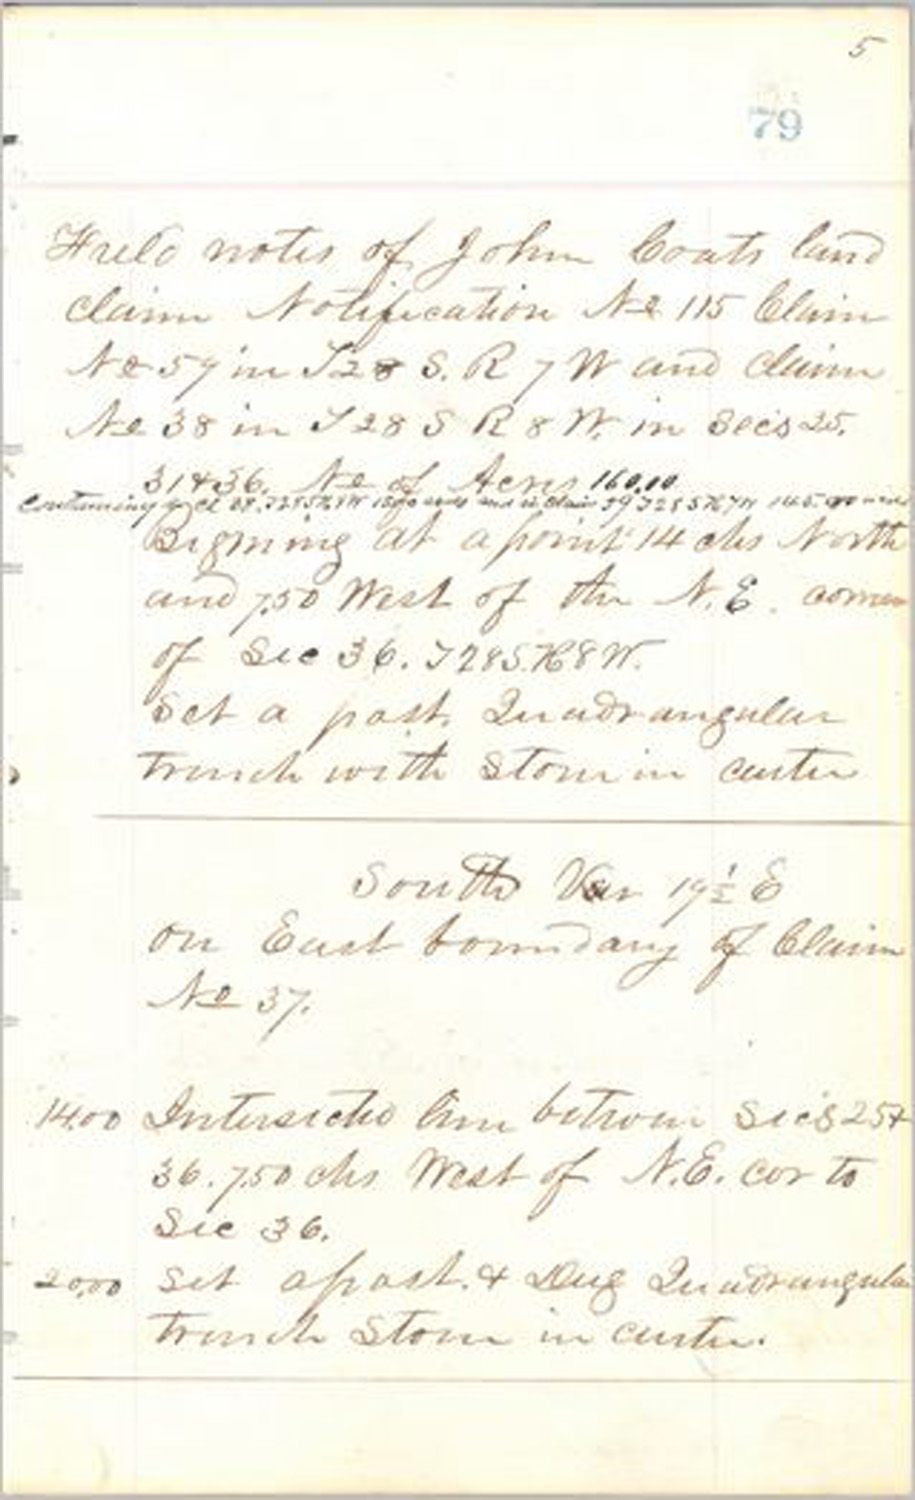 5
79
Field notes of John Coats land
claim Notification No 115 Claim
No 59 in T28 S. R 7 W and claim
No 38 in T 28 S R 8 W. in Secs 25.
31 & 36. No of Acres 160.00
Containing in cl 38. T28S R8W acres and in claim 59 T28S R7W 145.
Begining at a point 14 chs North
and 7.50 West of the N.E. corner
of Sec 36. T28S. R8W.
Set a post. Quadrangular
trench with stone in center
South Var 19½ E
on East boundary of Claim
No 37.
14.00 Intersected line between Sec's 25 &
36. 7.50 chs West of N.E. cor to
Sec 36.
20.00 Set a post. & Dug Quadrangular
trench Stone in center.